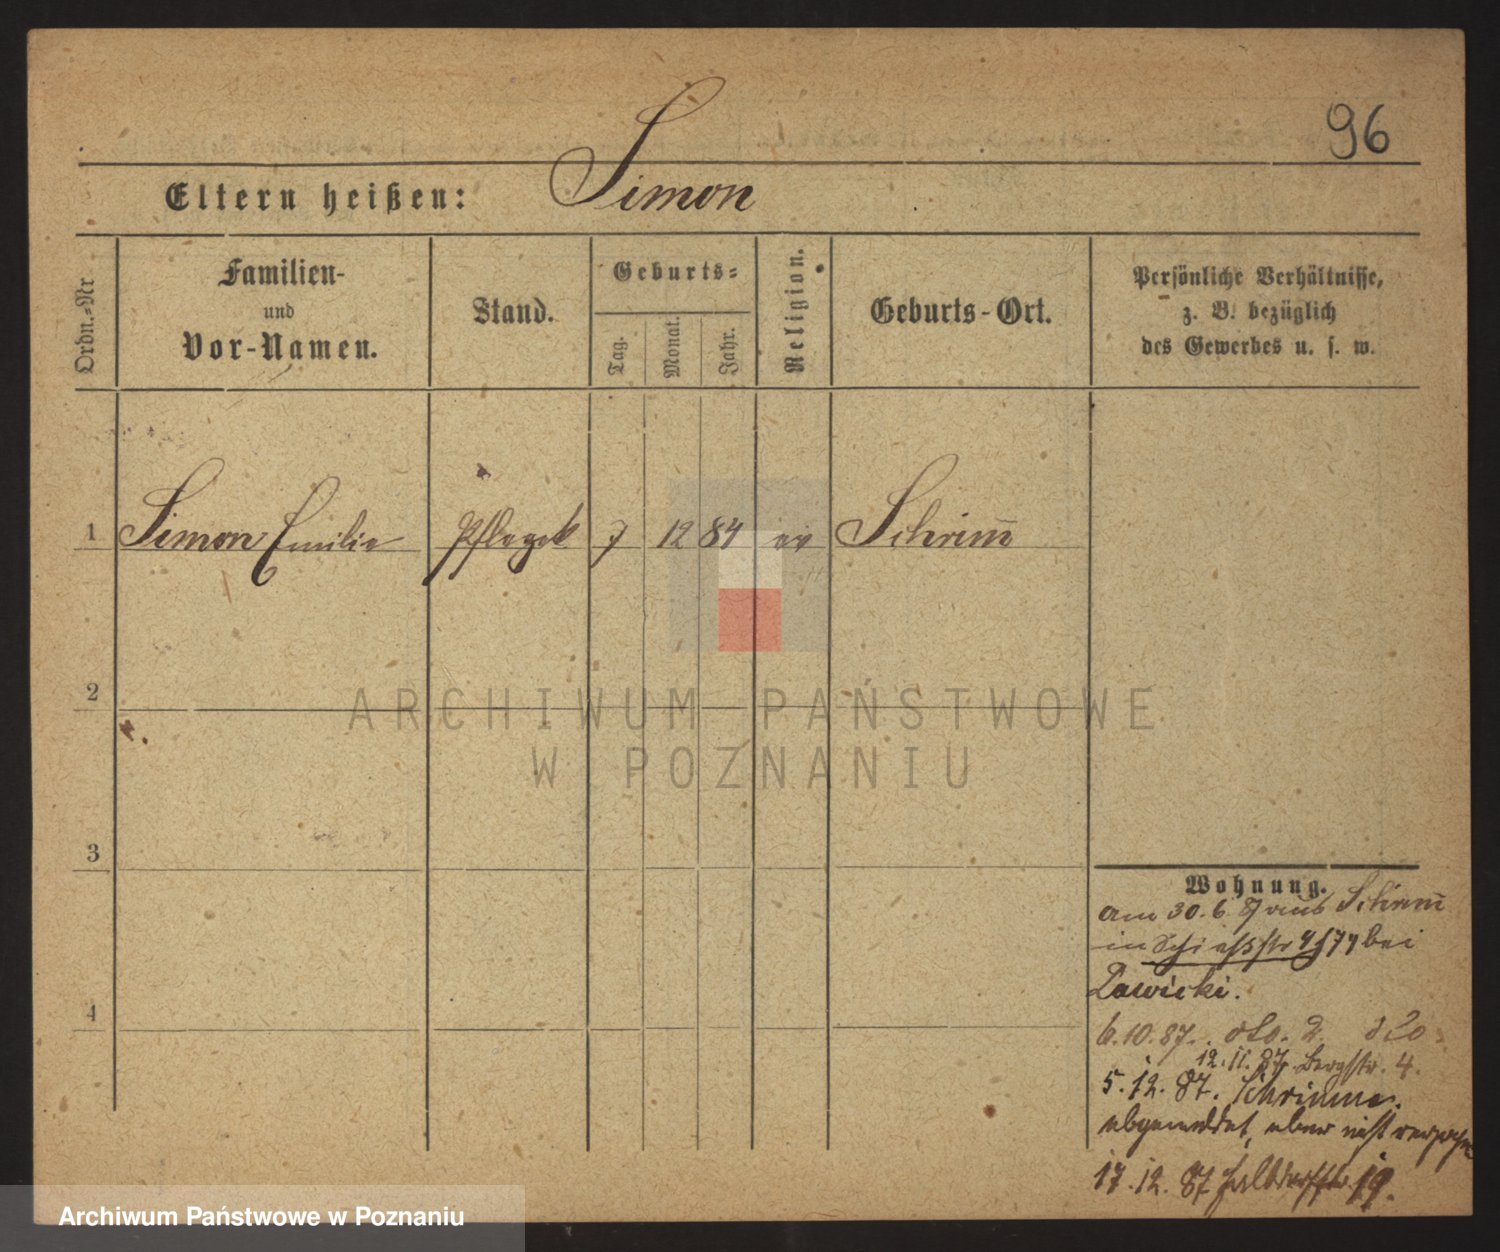 96
Eltern heißen: Simon
Ordn.-Nr
Familien-
und
Vor-Namen.
Stand.
Geburts-
Tag.
Monat.
Jahr.
Religion.
Geburts-Ort.
Persönliche Verhältnisse,
z. B. bezüglich
des Gewerbes u. s. w.
1 Simon Emilie Pflegek 7 12 84 ev Schrim̅
2
3
4
Wohnung.
am 30.6.87 aus Schrim̅
in Schießstr bei
Zawicki.
6.10.87. dto. 2.
12.11.87. Bergstr. 4.
5.12.87. Schrimm.
abgemeldet, aber nicht verzogen
17.12.87 19.
ARCHIWUM PAŃSTWOWE
W POZNANIU
Archiwum Państwowe w Poznaniu